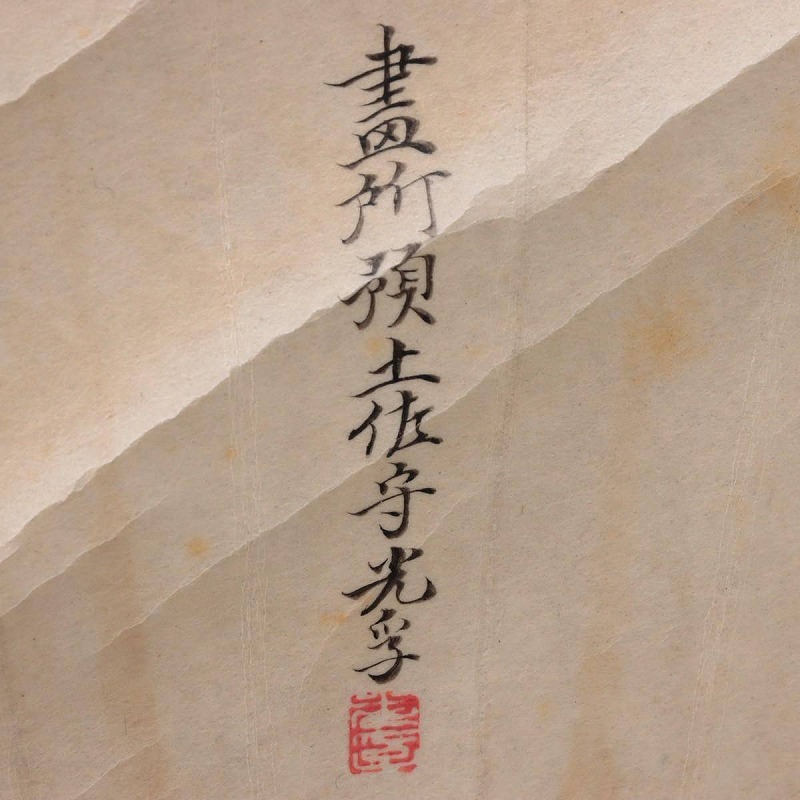 畫所預土佐守光孚